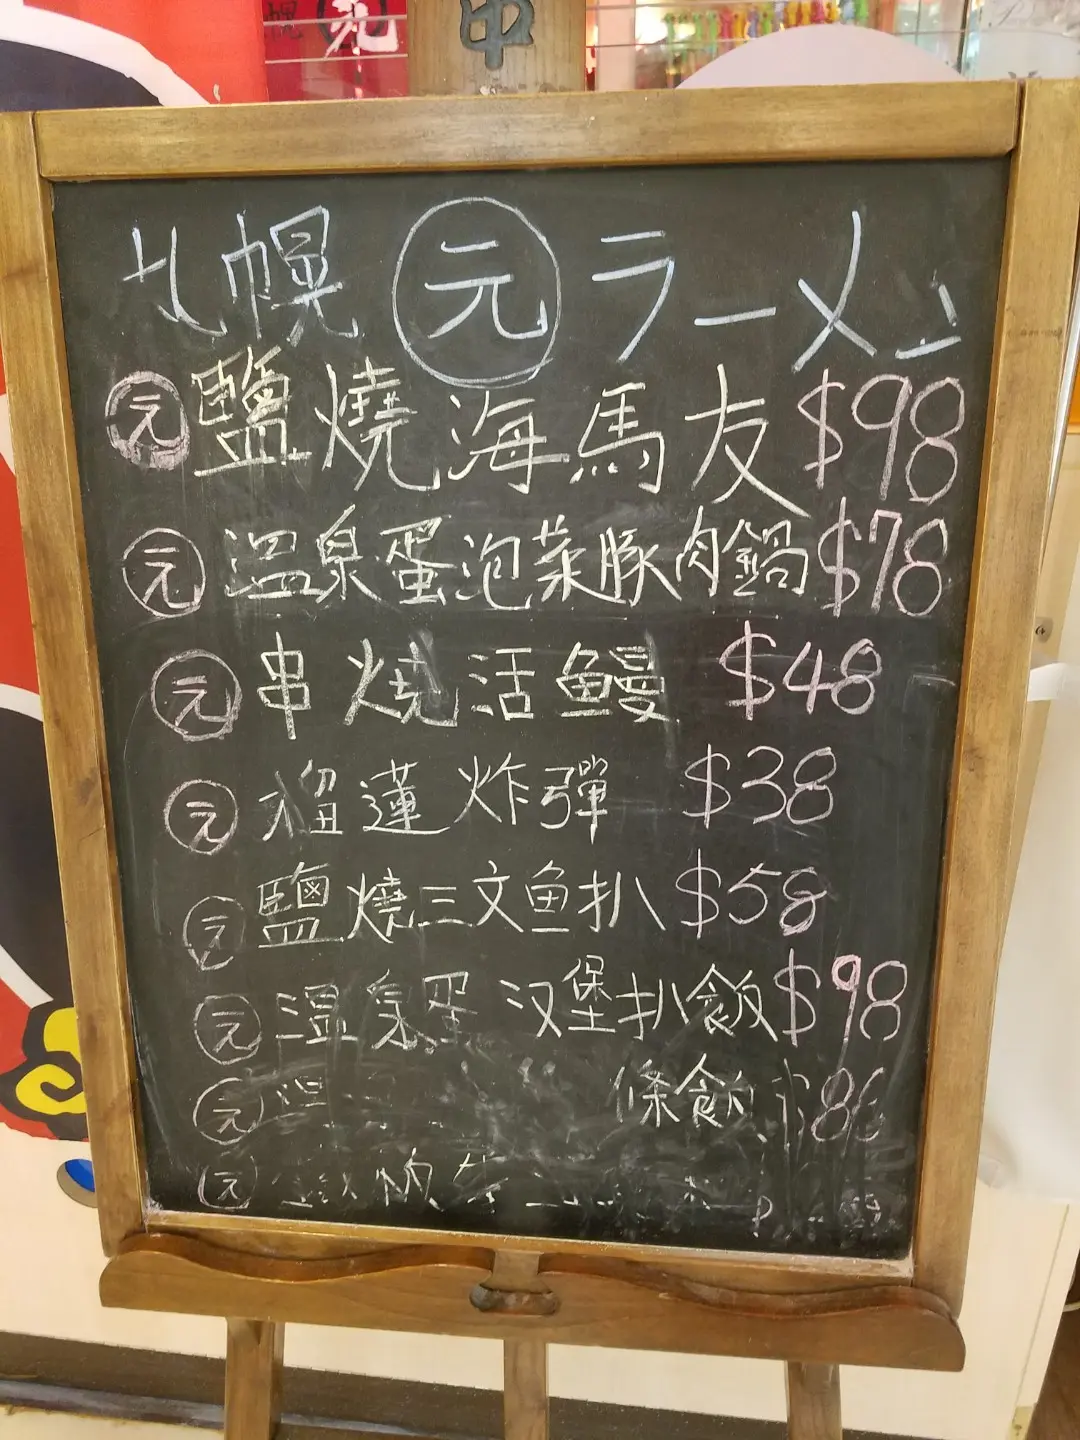 幌 元
申
札幌 元 ラーメン
元 鹽燒海馬友 $98
元 温泉蛋泡菜豚肉鍋 $78
元 串燒活鰻 $48
元 榴蓮炸彈 $38
元 鹽燒三文鱼扒 $58
元 温泉蛋汉堡扒飯 $98
元 温 條飩 $86
元